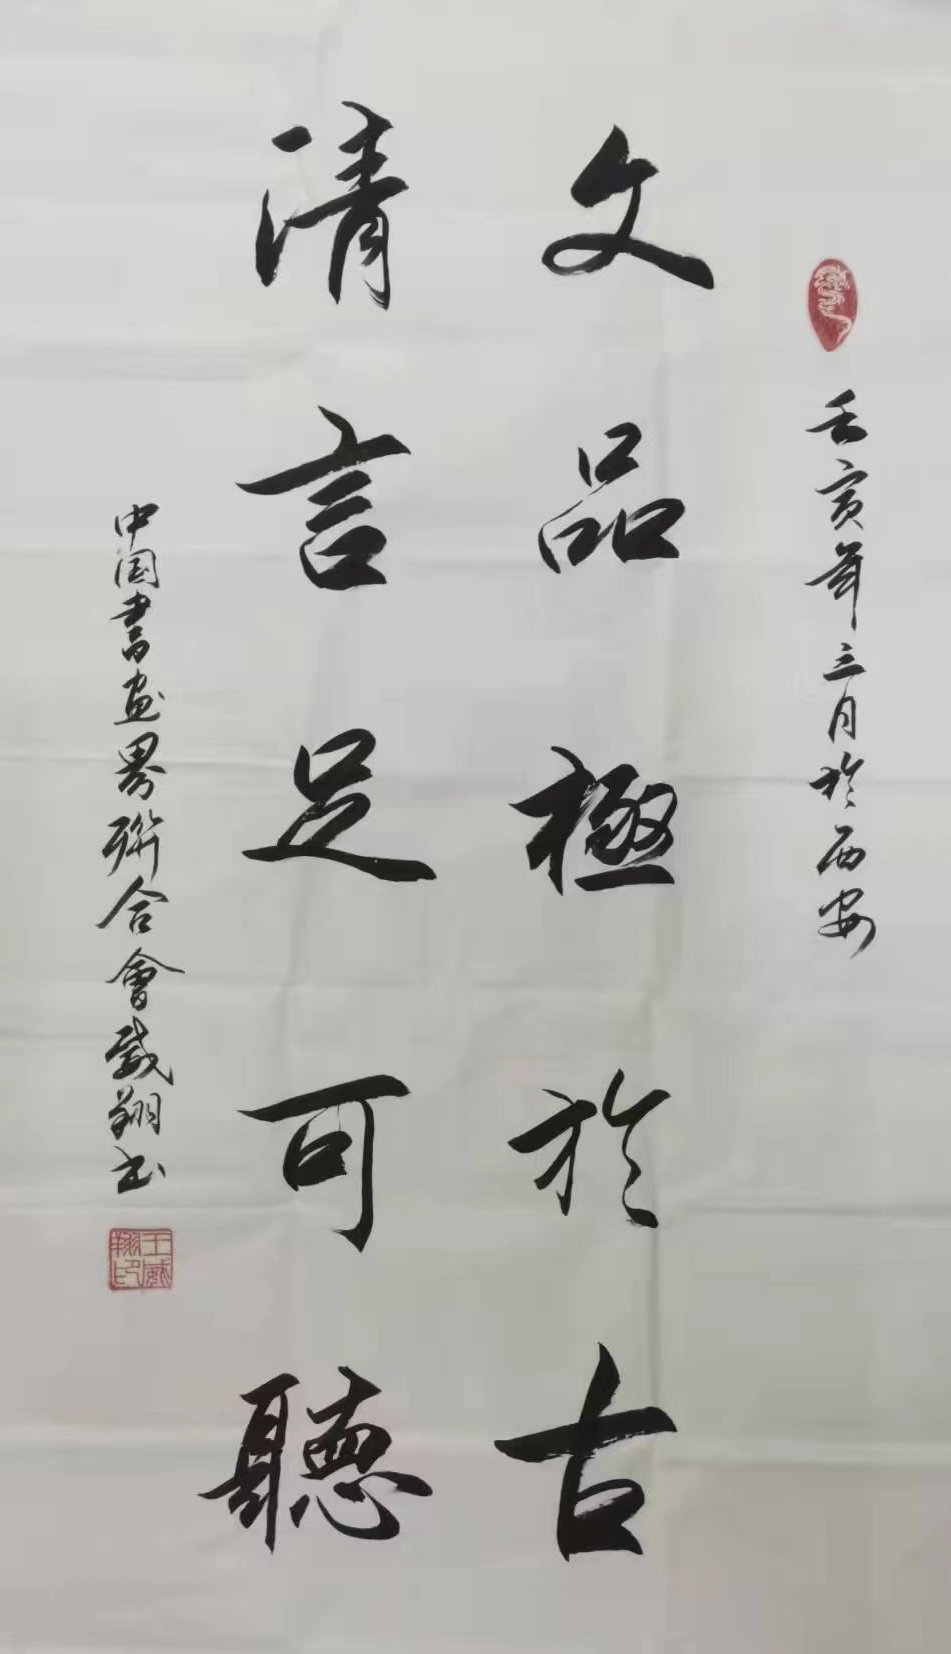 壬寅年三月於西安
文品極於古
清言足可聽
中国書画界聯合會威翔书
王威翔印